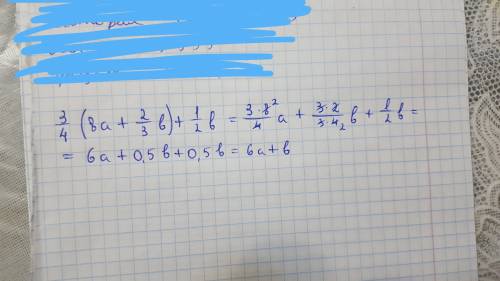 3/4 (8a + 2/3 b) + 1/2 b = 3·8²/4 a + 3·2/3·4₂ b + 1/2 b =
= 6a + 0,5b + 0,5b = 6a + b